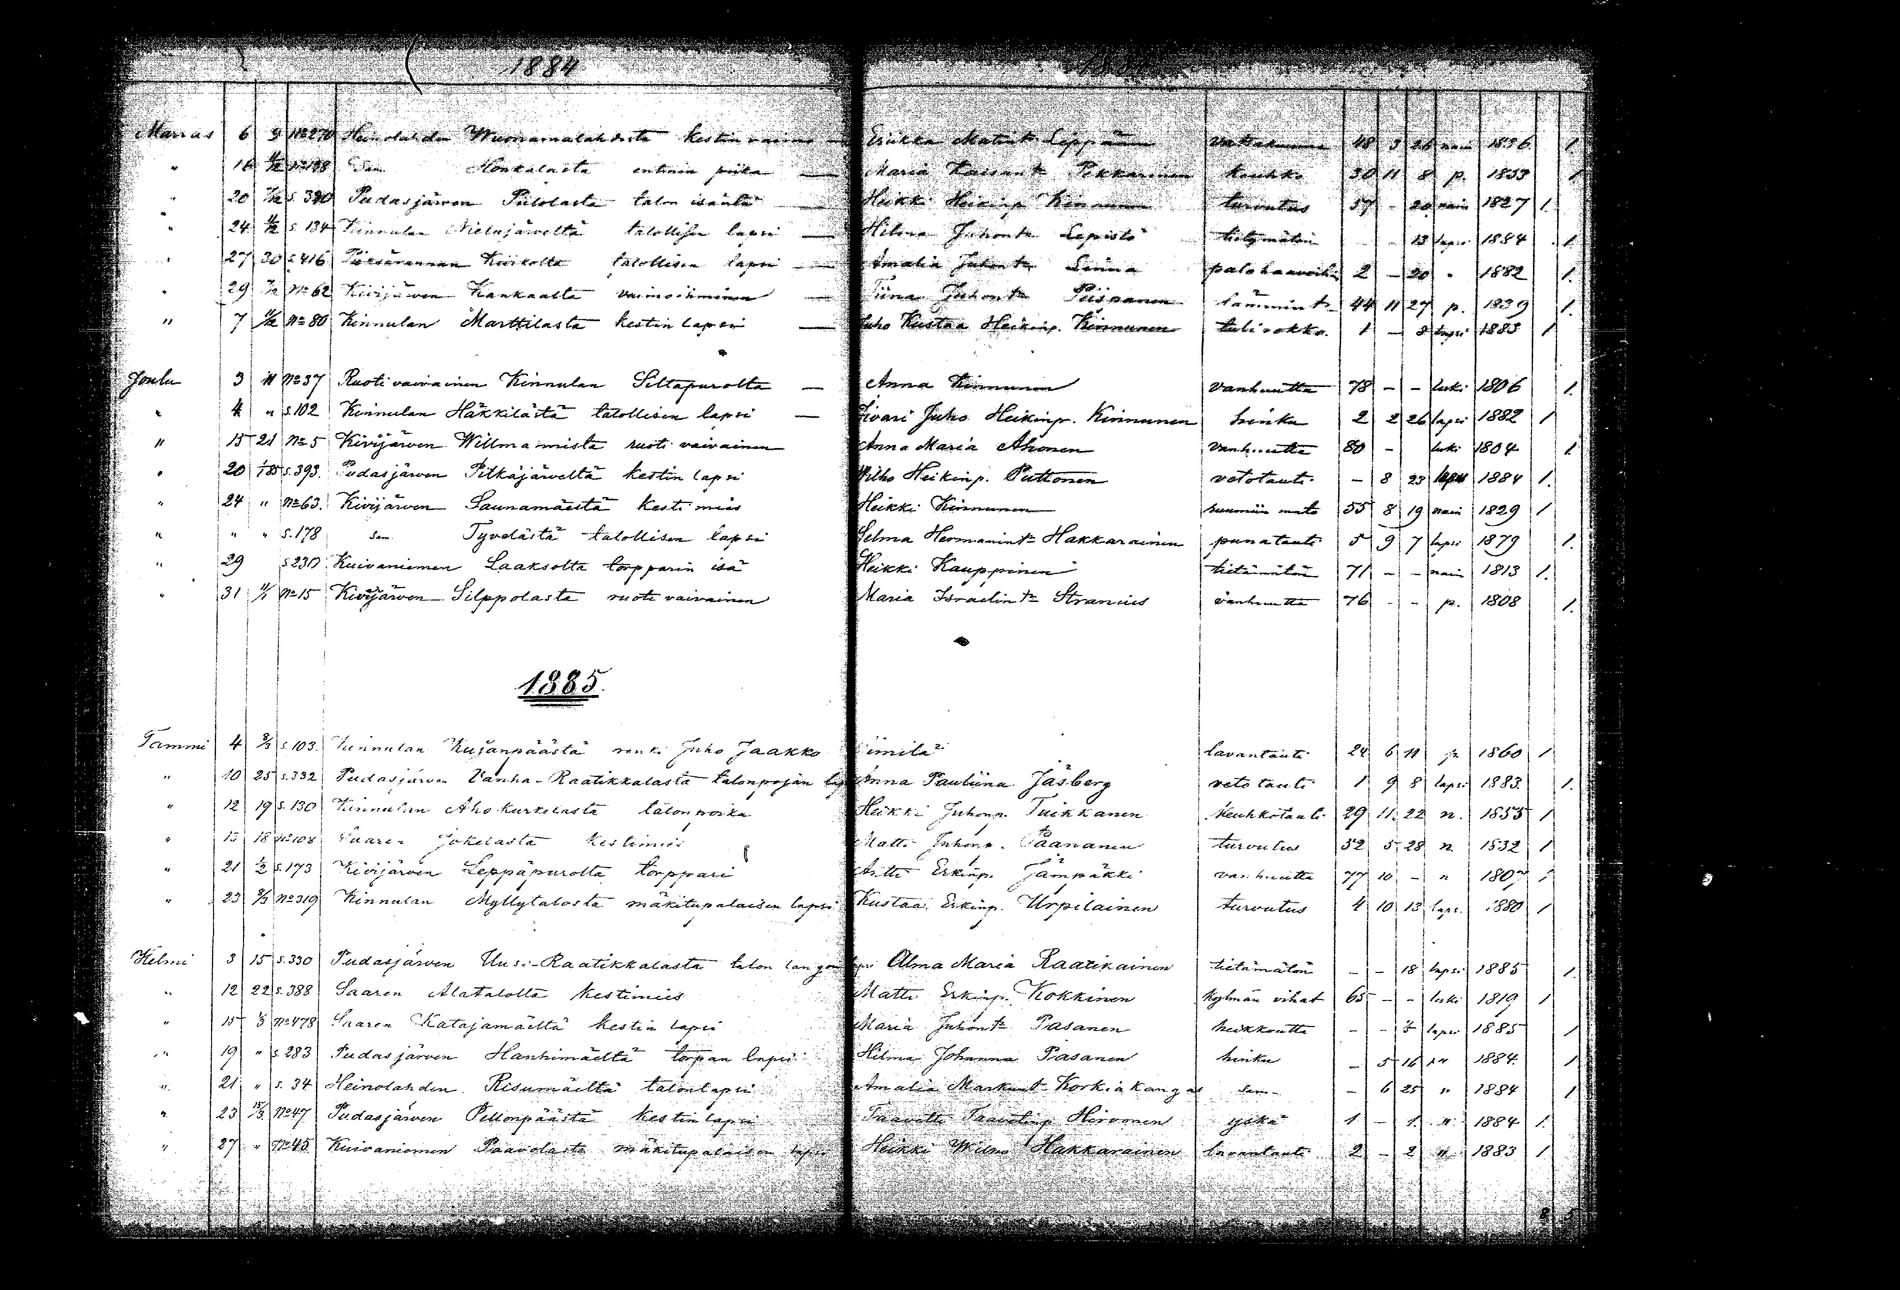 1884
Marras 6 9 No 270 Heinolahden Wuonamalahdesta kestin vaimo — Eriikka Matint. Leppänen 48 3 26 nain 1836 1
" 16 No 198 Sam. Honkalasta entinen piika — Maria Kaisant. Pekkarinen keuhko 30 11 8 p. 1853 1
" 20 s. 390 Pudasjärven Pulolasta talon isäntä — Heikki Heikinp. Kinnunen turvutus 57 - 20 nain 1827 1.
" 24 s. 134 Kinnulan Nielujärveltä talollisen lapsi — Hilma Juhont. Lepistö tietymätöin - - 13 lapsi 1884 1.
" 27 30 s. 416 Kuikolta talollisen lapsi — Amalia Juhont. Linna palohaavoihin 2 - 20 " 1882 1.
" 29 No 62 Kivijärven Kankaalta vaimoihminen — Tiina Juhont. Piispanen lämmint. 44 11 27 p. 1839 1.
" 7 No 80 Kinnulan Marttilasta kestin lapsi — Juho Kustaa Heikinp. Kinnunen tulirokko. 1 - 8 lapsi 1883 1
Joulu 3 11 No 37 Ruotivaivainen Kinnulan Siltapurolta — Anna Kinnunen vanhuutta 78 - - leski 1806 1.
" 4 " s. 102 Kinnulan Häkkilästä talollisen lapsi — Iivari Juho Heikinp. Kinnunen hinku 2 2 26 lapsi 1882 1
" 15 21 No 5 Kivijärven Willmamista ruoti vaivainen Anna Maria Ahonen vanhuutta 80 - leski 1804 1
" 20 1/85 s. 393. Pudasjärven Pitkäjärveltä kestin lapsi Wilho Heikinp. Puttonen vetotauti - 8 23 lapsi 1884 1.
" 24 " No 63. Kivijärven Saunamäestä kesti mies Heikki Kinnunen ruumiin mato 55 8 19 nain 1829 1
" " " s. 178 Sam. Tyvelästä talollisen lapsi Selma Hermanint. Hakkarainen punatauti 5 9 7 lapsi 1879 1.
" 29 s 230 Kuivaniemen Laaksolta torpparin isä Heikki Kauppinen tietämätön 71 - - nain 1813 1.
" 31 11/1 No 15 Kivijärven Silppolasta ruoti vaivainen Maria Israelint. Stranius vanhuutta 76 - - p. 1808 1.
1885.
Tammi 4 s. 103. Kinnulan Kujanpäästä renki Juho Jaakko Niinilä lavantauti 24 6 11 1860 1
" 10 25 s. 332 Pudasjärven Vanha-Raatikkalasta talonpojan lapsi Anna Pauliina Jäsberg vetotauti 1 9 8 lapsi 1883. 1.
" 12 19 s. 130 Kinnulan Ahokurkelasta talonpoika Heikki Juhonp. Tuikkanen Keuhkotauti 29 11. 22 n. 1855 1
" 13 18 No 108 Saaren Jokelasta kestimies Matti Juhonp. Paananen turvutus 52 5 28 n. 1832 1
" 21 1/2 s. 173 Kivijärven Leppäpurolta torppari Antti Erkinp. Jämpäkki vanhuutta 77 10 - n 1807 1
" 23 No 319 Kinnulan Myllytalosta mäkitupalaisen lapsi Kustaa Erkinp. Urpilainen turvutus 4 10 13 laps. 1880 1
Helmi 3 15 s. 330 Pudasjärven Uusi-Raatikkalasta talon langon lapsi Alma Maria Raatikainen tietämätön - - 18 lapsi 1885 1.
" 12 22 s. 388 Saaren Alatalolta kestimies Matti Erkinp. Kokkinen kylmän vihat 65 - - leski 1819 1
" 15 1/3 No 478 Saaren Katajamäeltä kestin lapsi Maria Juhont. Pasanen heikkoutta - - lapsi 1885 1
" 19 " s. 283 Pudasjärven Hanhimäeltä torpan lapsi Hilma Johanna Pasanen hinku - 5 16 " 1884. 1
" 21 " s. 34 Heinolahden Risumäeltä talonlapsi Amalia Markunt. Korkiakangas sam- - 6 25 " 1884 1
" 23 15/3 No 47 Pudasjärven Pellonpäästä kestin lapsi Taavetti Taavetinp Hirvonen yskä 1 - 1. " 1884 1.
" 27 " No 45 Kuivaniemen Paavolasta mäkitupalaisen lapsi Heikki Wilho Hakkarainen lavantauti 2 - 2 " 1883 1
8 5